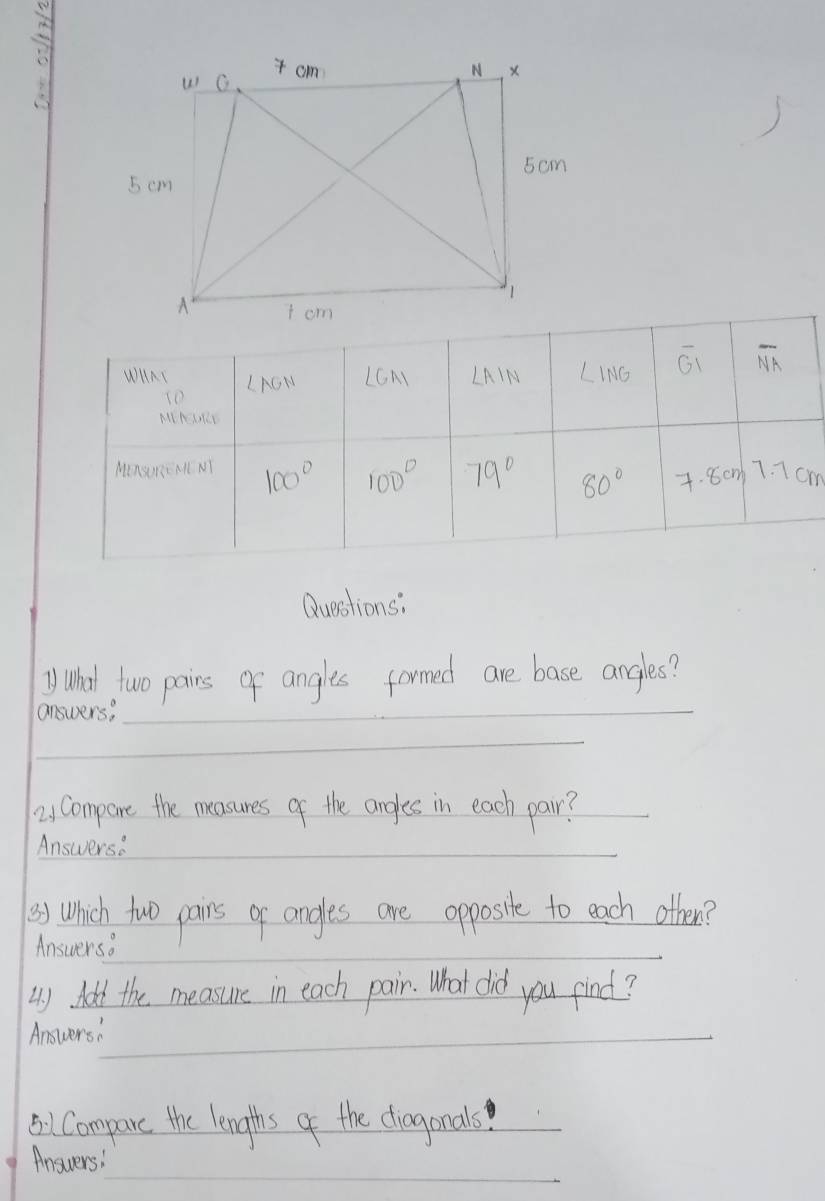 7 cm
W G N X
5 cm 5 cm
A I
7 cm
WHAT TO MEASURE ∠AGN ∠GAI ∠AIN ∠ING G̅I̅ N̅A̅
MEASUREMENT 100° 100° 79° 80° 7.8cm 7.7 cm
Questions:
1) What two pairs of angles formed are base angles?
answers:
2) Compare the measures of the angles in each pair?
Answers:
3) Which two pairs of angles are opposite to each other?
Answers:
4.) Add the measure in each pair. What did you find?
Answers:
5.) Compare the lengths of the diagonals?
Answers: